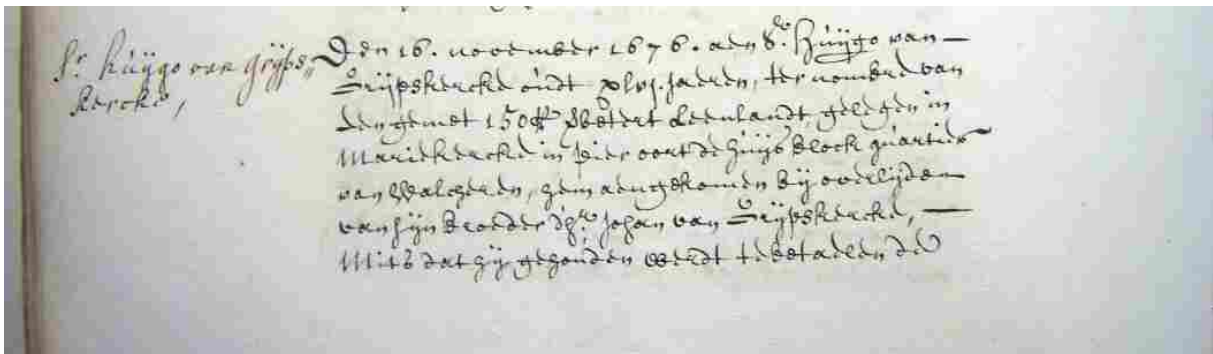 Sr. Huijgo van Grijps„
kercke,
Den 16. november 1676. aen Sr. Huijgo van—
Grijpskercke oudt xlvj. Jaeren, ter nombre van
een gemet 150 R Versterf Leenlandt, gelegen in
Mariekercke in Pier oort de Huijs block quartier
van Walcheren, hem aengekomen bij overlijden
van sijn broeder dhr. Johan van Grijpskercke,—
Mits dat hij gehouden werdt te betaelen de